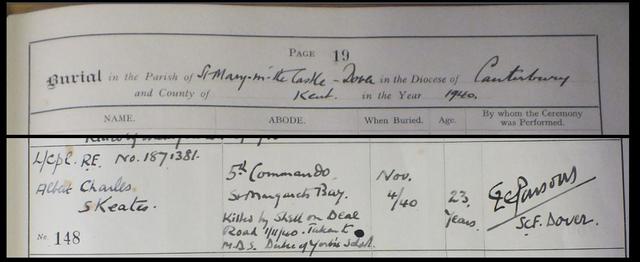 PAGE 19
Burial in the Parish of St Mary-in-the Castle - Dover in the Diocese of Canterbury
and County of Kent. in the Year 1940.
NAME. ABODE. When Buried. Age. By whom the Ceremony was Performed.
L/Cpl. R.E. No. 1871381.
Albert Charles
Skeates.
No. 148
5th Commando
St Margarets Bay.
Killed by Shell on Deal
Road 1/11/40. Taken to
M.D.S. Duke of Yorks School.
Nov.
4/40
23
Years.
Parsons
S.C.F. Dover.